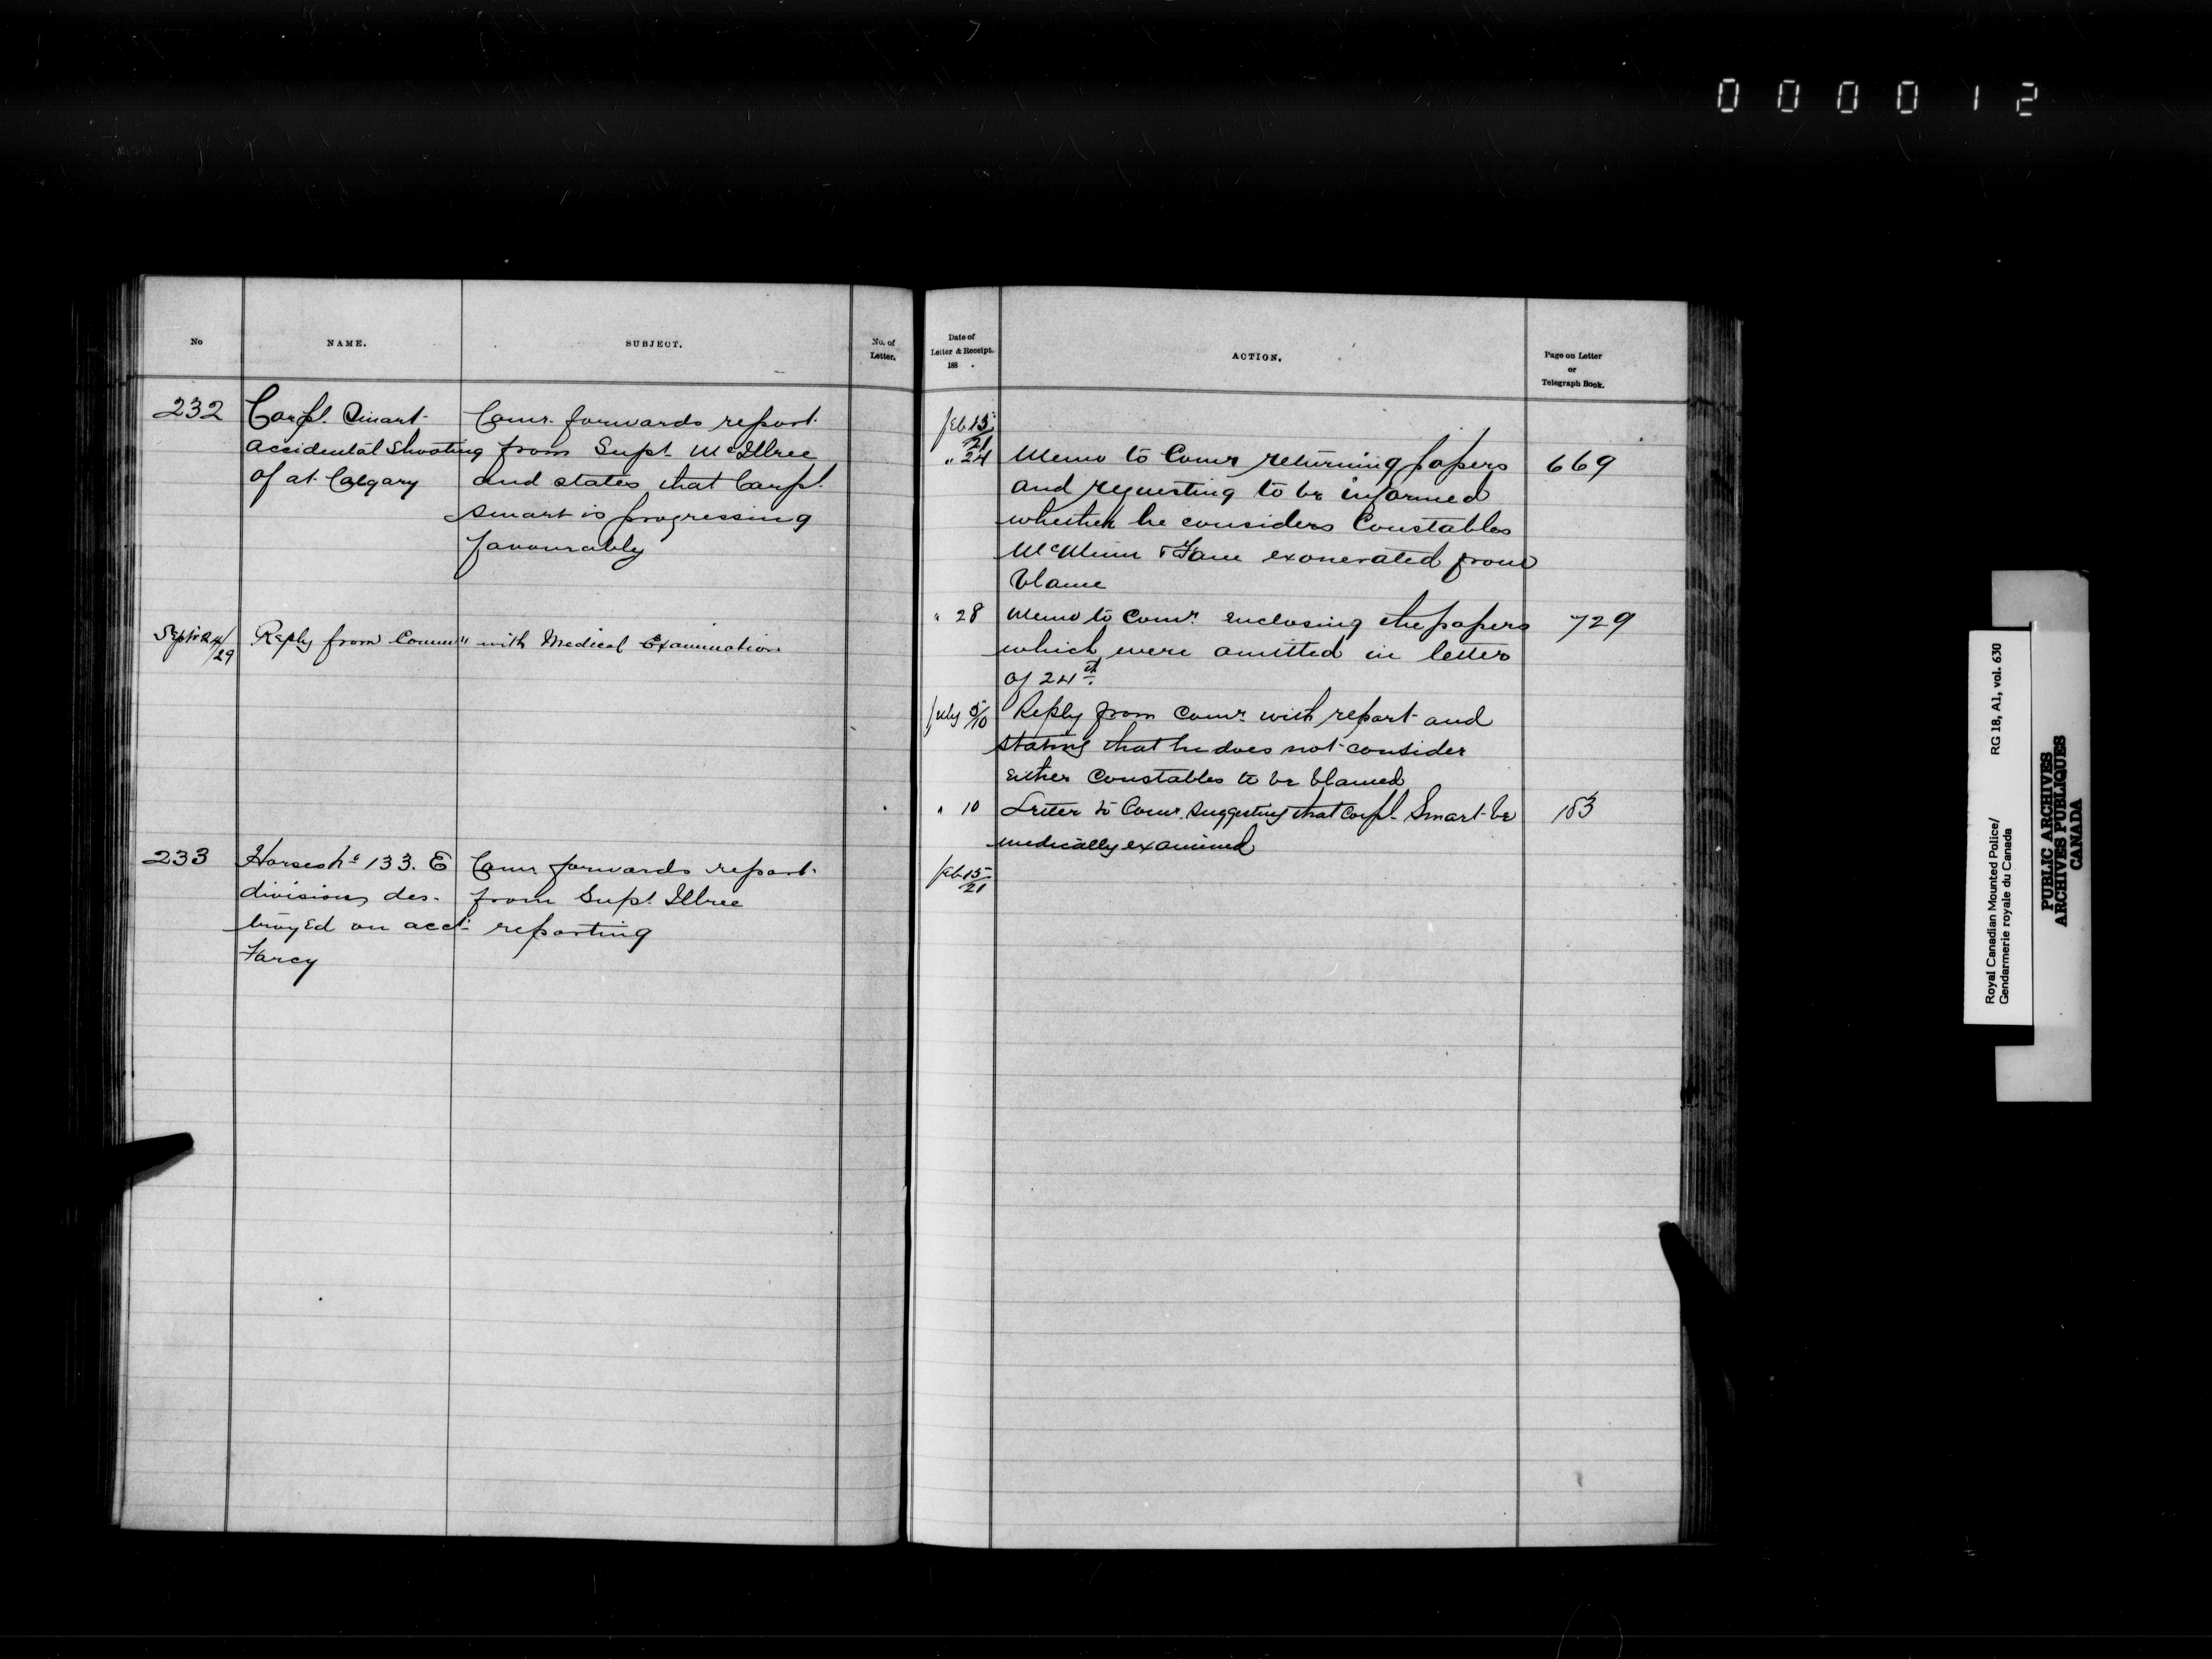 000012
No
NAME.
SUBJECT.
No. of
Letter.
232
Corpl. Smart
accidental shooting
of at Calgary
Comr. forwards report
from Supt. McIllree
and states that Corpl.
Smart is progressing
favourably
Sept 24/29
Reply from Commr with Medical Examination
233
Horses No 133. E
division, des-
troyed on acct.
Farcy
Comr forwards report
from Supt. Illree
reporting
Date of
Letter & Receipt.
188 .
ACTION.
Page on Letter
or
Telegraph Book.
Feb 15/21
" 24
Memo to Comr returning papers
669
and requesting to be informed
whether he considers Constables
& exonerated from
blame
" 28
Memo to Comr. enclosing the papers
729
which were omitted in letter
of 24th.
July 5/10
Reply from Comr. with report and
stating that he does not consider
either Constables to be blamed
" 10
Letter to Comr. suggesting that Corpl. Smart be
183
medically examined
Feb 15/21
Royal Canadian Mounted Police/ RG 18, A1, vol. 630
Gendarmerie royale du Canada
PUBLIC ARCHIVES
ARCHIVES PUBLIQUES
CANADA